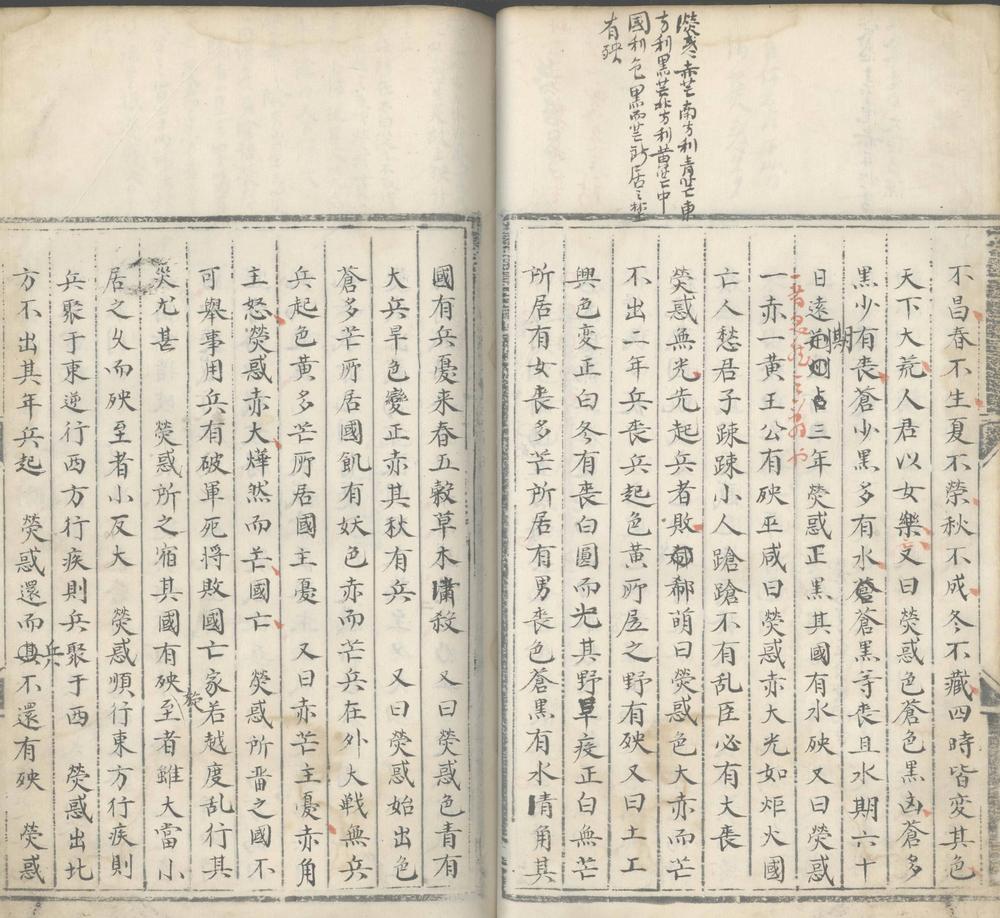 熒惑赤芒南方利青芒東
方利黒芒北方利黄芒中
國利色黒而芒所居之埜
有殃
不昌春不生夏不榮秋不成冬不藏四時皆变其色
天下大荒人君以女樂文曰熒惑色蒼色黒凶蒼多
黒少有喪蒼少黒多有水蒼蒼黒等喪且水期六十
日遠期三年熒惑正黒其國有水殃又曰熒惑
一赤一黄王公有殃巫咸曰熒惑赤大光如炬火國
亡人愁君子踈踈小人蹌蹌不有乱臣必有大喪
熒惑無光先起兵者敗郗萌曰熒惑色大赤而芒
不出二年兵喪兵起色黄所居之野有殃又曰土工
興色变正白冬有喪白圓而光其野旱疫正白無芒
所居有女喪多芒所居有男喪色蒼黒有水清角其
國有兵憂来春五穀草木肅殺　又曰熒惑色青有
大兵旱色變正赤其秋有兵　又曰熒惑始出色
蒼多芒所居國飢有妖色赤而芒兵在外大戦無兵
兵起色黄多芒所居國主憂　又曰赤芒主憂赤角
主怒熒惑赤大燁然而芒國亡　熒惑所畱之國不
可舉事用兵有破軍死将敗國亡家若越度乱行其
災尤甚　熒惑所之宿其國有殃至者雖大當小
居之久而殃至者小反大　熒惑順行東方行疾則
兵聚于東逆行西方行疾則兵聚于西　熒惑出北
方不出其年兵起　熒惑還而兵不還有殃　熒惑